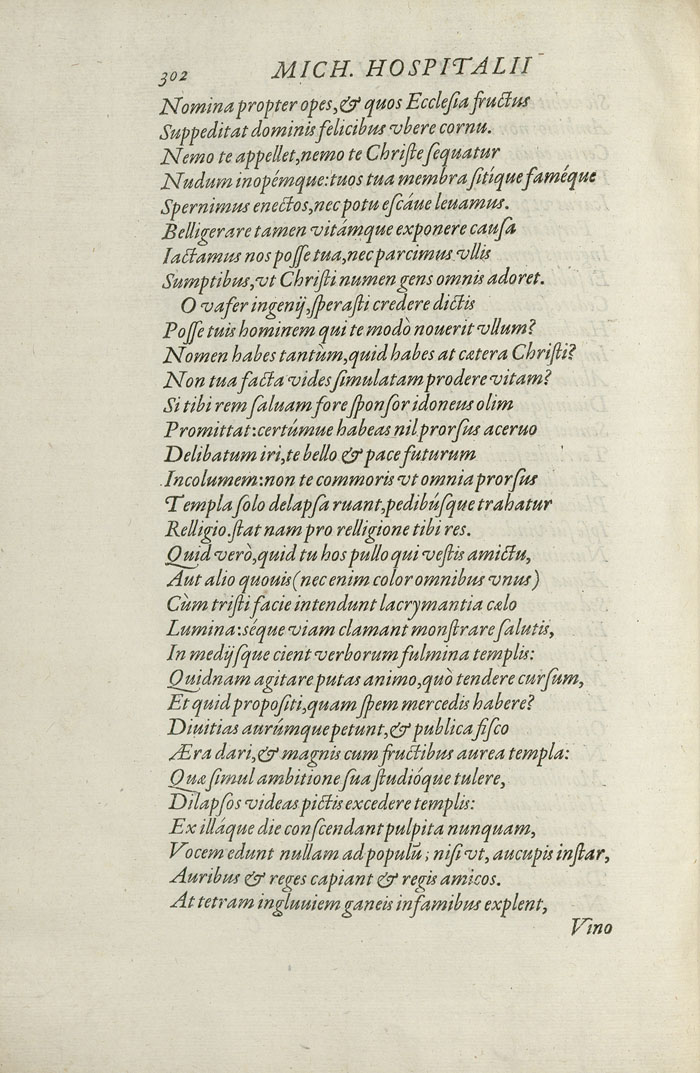 302 MICH. HOSPITALII
Nomina propter opes, & quos Ecclesia fructus
Suppeditat dominis felicibus vbere cornu.
Nemo te appellet, nemo te Christe sequatur
Nudum inopémque: tuos tua membra sitíque faméque
Spernimus enectos, nec potu escáue leuamus.
Belligerare tamen vitámque exponere causa
Iactamus nos posse tua, nec parcimus vllis
Sumptibus, vt Christi numen gens omnis adoret.
O vafer ingenij, sperasti credere dictis
Posse tuis hominem qui te modò nouerit vllum?
Nomen habes tantùm, quid habes at cætera Christi?
Non tua facta vides simulatam prodere vitam?
Si tibi rem saluam fore sponsor idoneus olim
Promittat: certúmue habeas nil prorsus aceruo
Delibatum iri, te bello & pace futurum
Incolumem: non te commoris vt omnia prorsus
Templa solo delapsa ruant, pedibúsque trahatur
Relligio. stat nam pro relligione tibi res.
Quid verò, quid tu hos pullo qui vestis amictu,
Aut alio quouis (nec enim color omnibus vnus)
Cùm tristi facie intendunt lacrymantia cælo
Lumina: séque viam clamant monstrare salutis,
In medijsque cient verborum fulmina templis:
Quidnam agitare putas animo, quò tendere cursum,
Et quid propositi, quam spem mercedis habere?
Diuitias aurúmque petunt, & publica fisco
Æra dari, & magnis cum fructibus aurea templa:
Quæ simul ambitione sua studióque tulere,
Dilapsos videas pictis excedere templis:
Ex illáque die conscendant pulpita nunquam,
Vocem edunt nullam ad populū; nisi vt, aucupis instar,
Auribus & reges capiant & regis amicos.
At tetram ingluuiem ganeis infamibus explent,
Vino